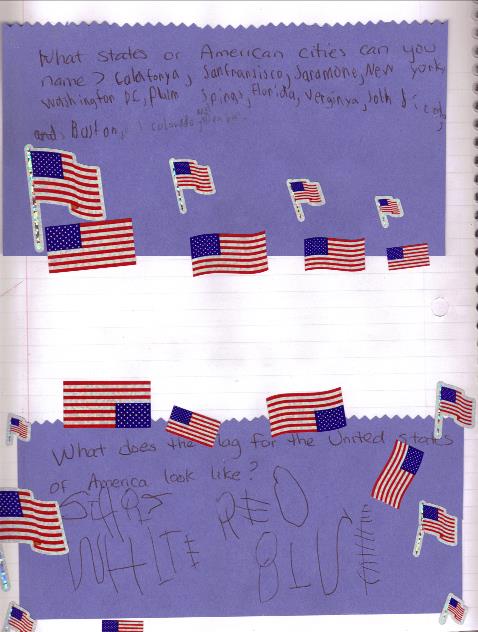 What states or American cities can you
name ? Calafonya, Sanfransisco, Saramone, New york,
Washington DC, Plalm Spings, Florida, Verginya,
and, Boston, colorado,
What does the lag for the United states
of America look like?
RED
WHITE BLUE